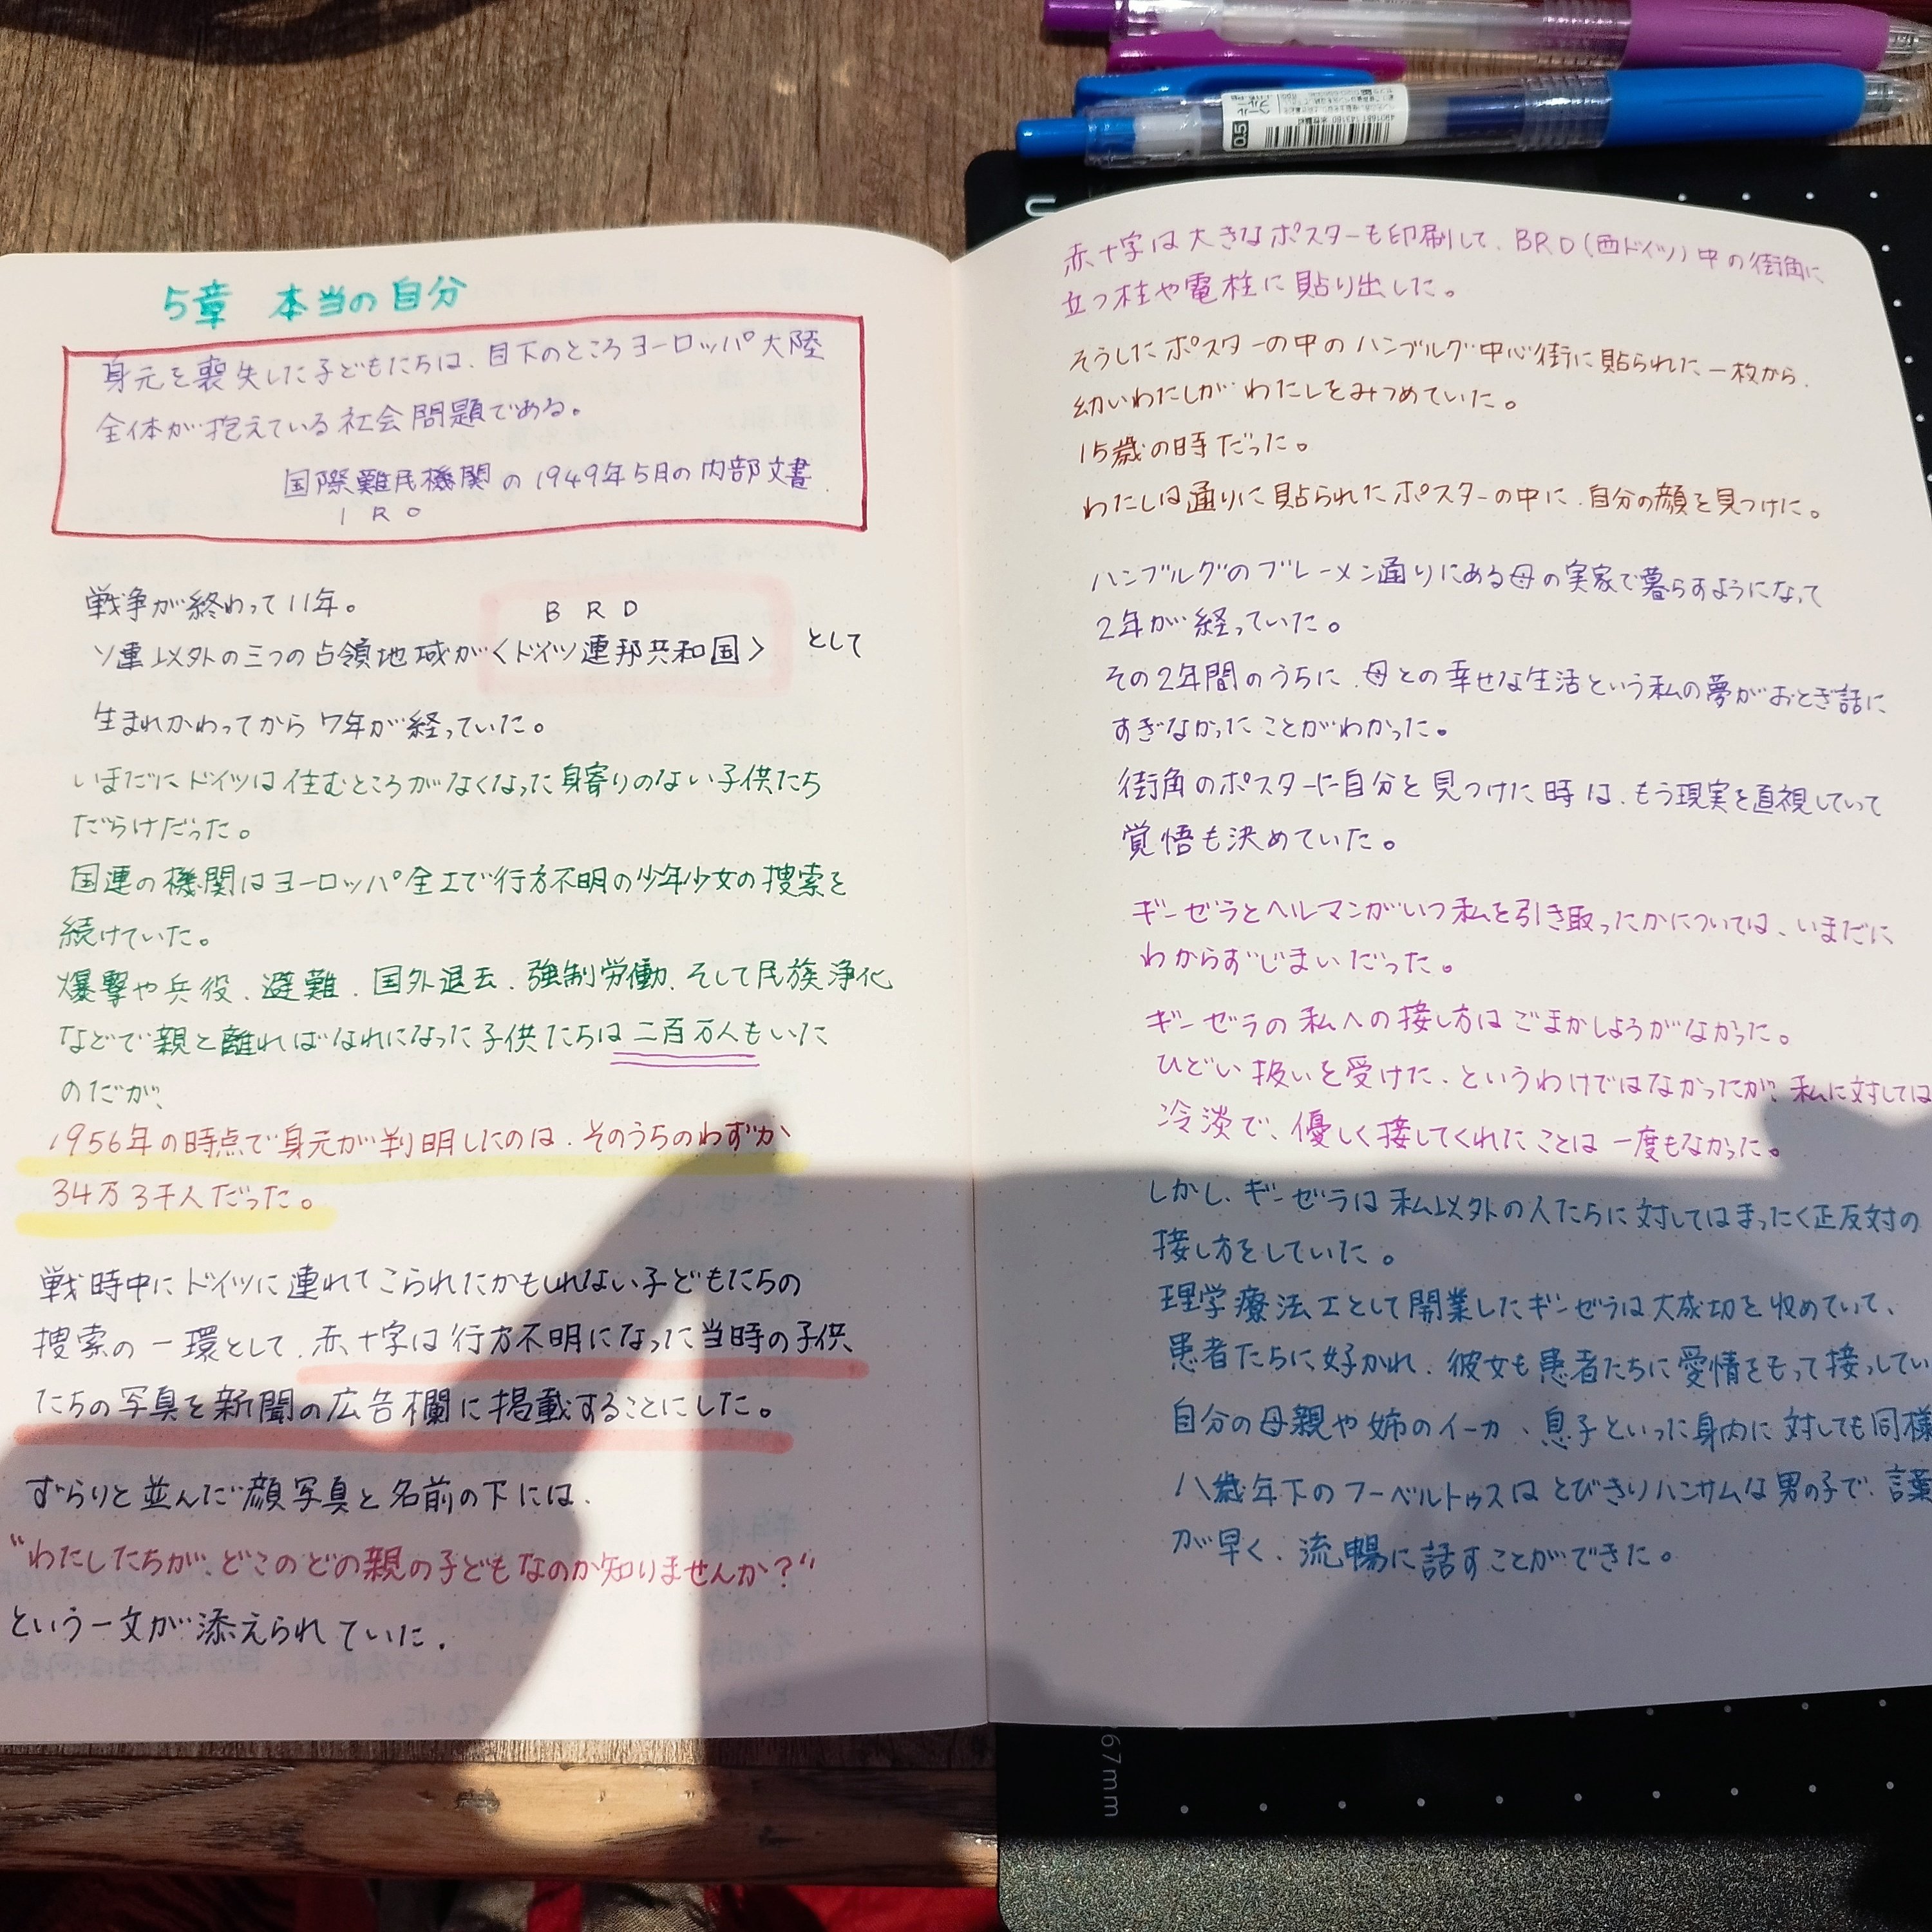 5章 本当の自分
身元を喪失した子どもたちは、目下のところヨーロッパ大陸
全体が抱えている社会問題である。
国際難民機関の1949年5月の内部文書
IRO
戦争が終わって11年。
BRD
ソ連以外の三つの占領地域が〈ドイツ連邦共和国〉として
生まれかわってから7年が経っていた。
いまだにドイツは住むところがなくなった身寄りのない子供たち
だらけだった。
国連の機関はヨーロッパ全土で行方不明の少年少女の捜索を
続けていた。
爆撃や兵役、避難、国外退去、強制労働、そして民族浄化
などで親と離ればなれになった子供たちは二百万人もいた
のだが、
1956年の時点で身元が判明したのは、そのうちのわずか
34万3千人だった。
戦時中にドイツに連れてこられたかもしれない子どもたちの
捜索の一環として、赤十字は行方不明になった当時の子供
たちの写真を新聞の広告欄に掲載することにした。
ずらりと並んだ顔写真と名前の下には、
“わたしたちが、どこのどの親の子どもなのか知りませんか?“
という一文が添えられていた。
赤十字は大きなポスターも印刷して、BRD(西ドイツ)中の街角に
立つ柱や電柱に貼り出した。
そうしたポスターの中のハンブルグ中心街に貼られた一枚から、
幼いわたしがわたしをみつめていた。
15歳の時だった。
わたしは通りに貼られたポスターの中に、自分の顔を見つけた。
ハンブルグのブレーメン通りにある母の実家で暮らすようになって
2年が経っていた。
その2年間のうちに、母との幸せな生活という私の夢がおとぎ話に
すぎなかったことがわかった。
街角のポスターに自分を見つけた時は、もう現実を直視していて
覚悟も決めていた。
ギーゼラとヘルマンがいつ私を引き取ったかについては、いまだに
わからずじまいだった。
ギーゼラの私への接し方はごまかしようがなかった。
ひどい扱いを受けた、というわけではなかったが、私に対しては
冷淡で、優しく接してくれたことは一度もなかった。
しかし、ギーゼラは私以外の人たちに対してはまったく正反対の
接し方をしていた。
理学療法士として開業したギーゼラは大成功を収めていて、
患者たちに好かれ、彼女も患者たちに愛情をもって接してい
自分の母親や姉のイーカ、息子といった身内に対しても同様
八歳年下のフーベルトゥスはとびきりハンサムな男の子で、言葉
が早く、流暢に話すことができた。
0.5
ブルー
4901681143160
67mm